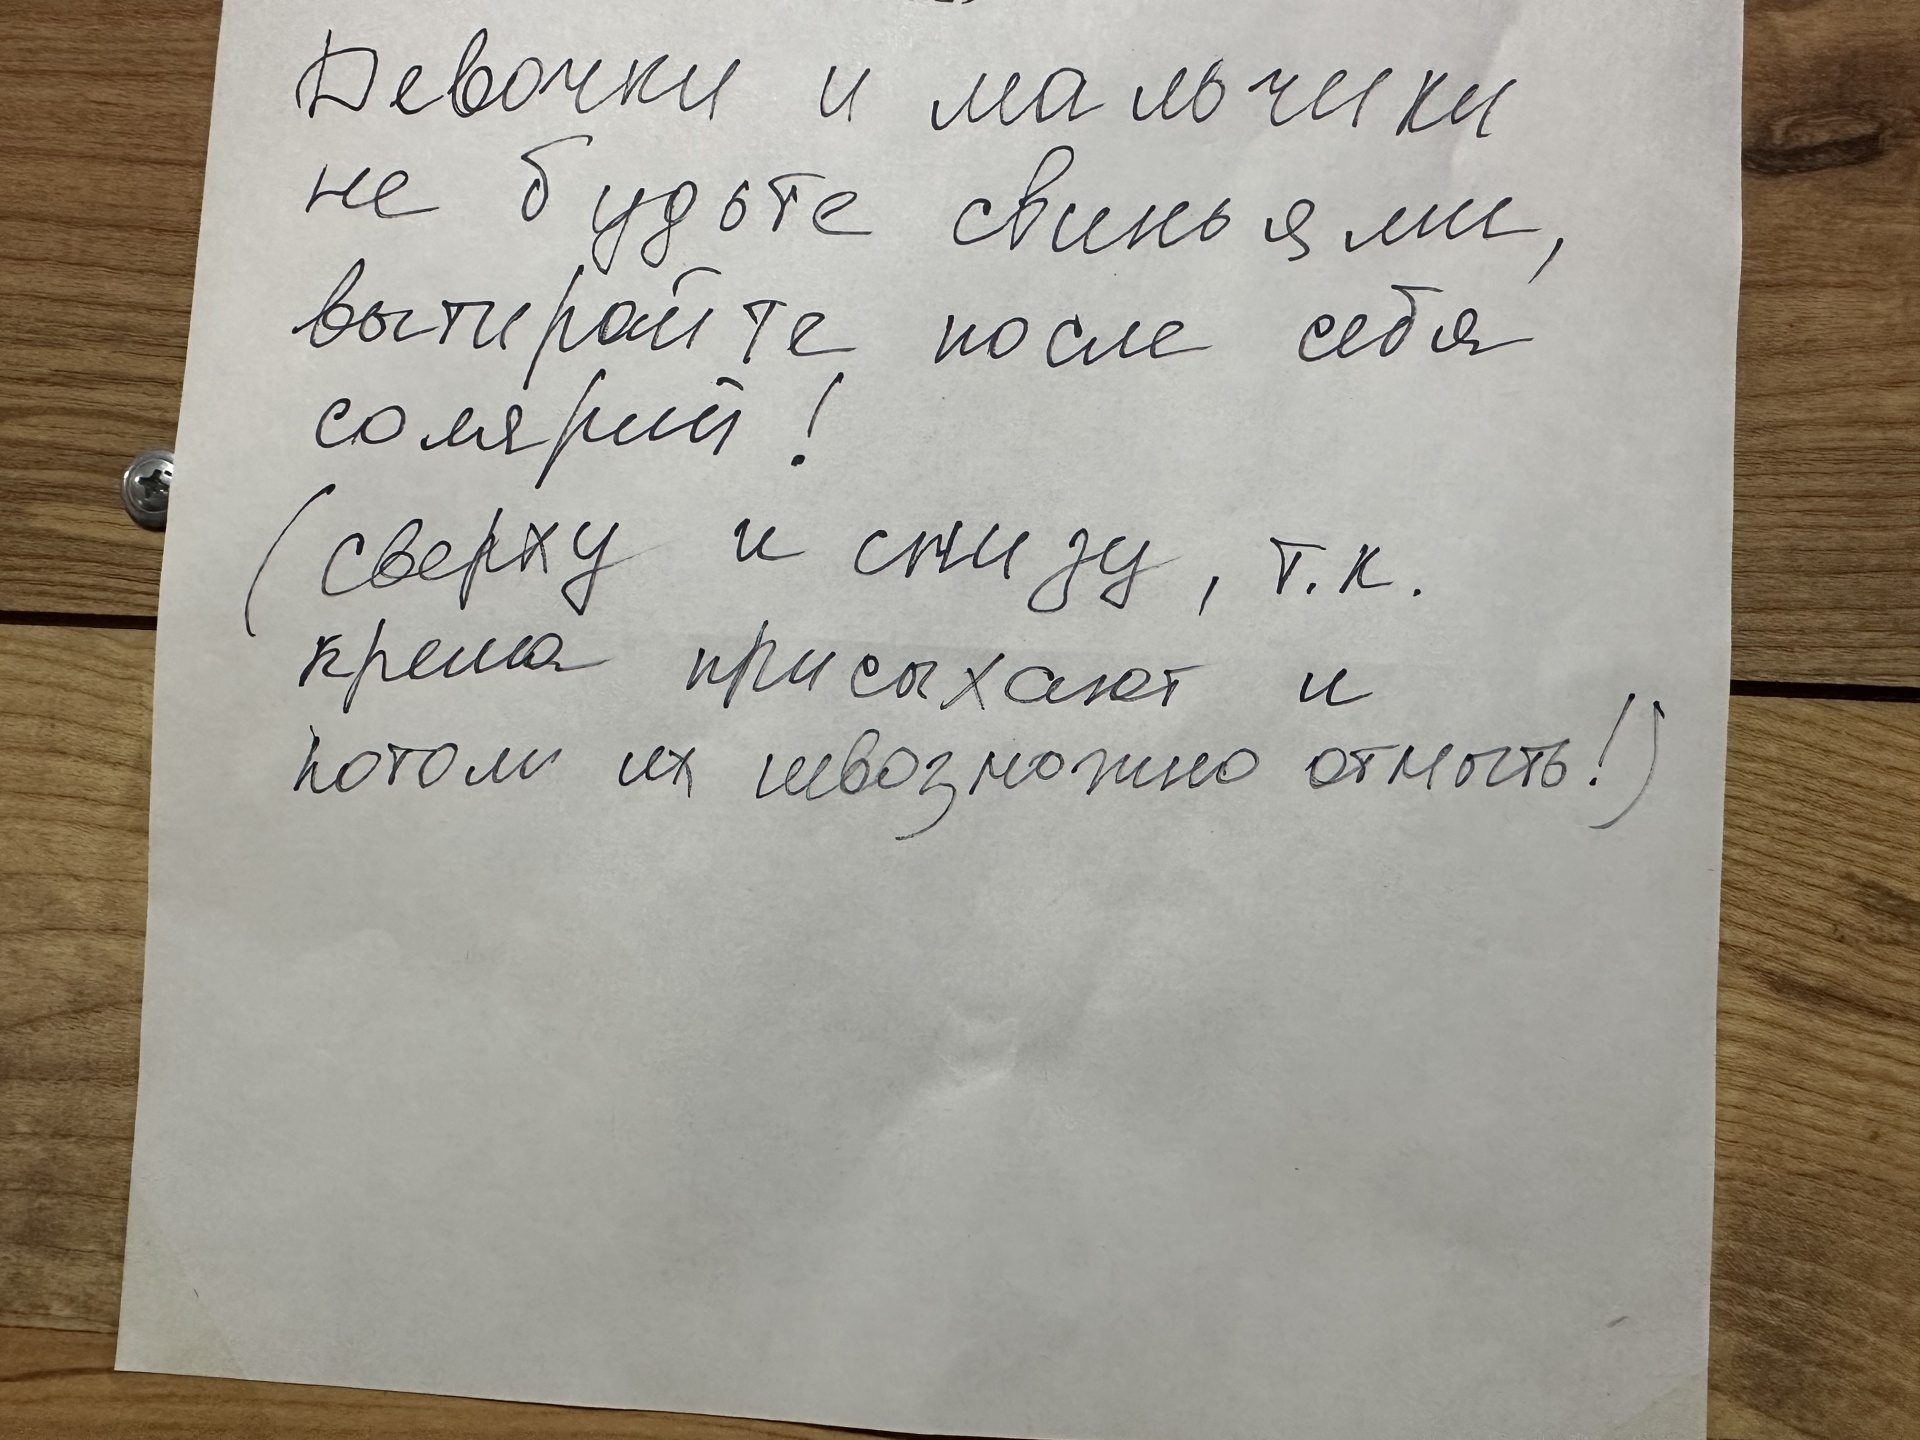 Девочки и мальчики
не будьте свиньями,
вытирайте после себя
солярий!
(сверху и снизу, т.к.
крема присыхают и
потом их невозможно отмыть!)